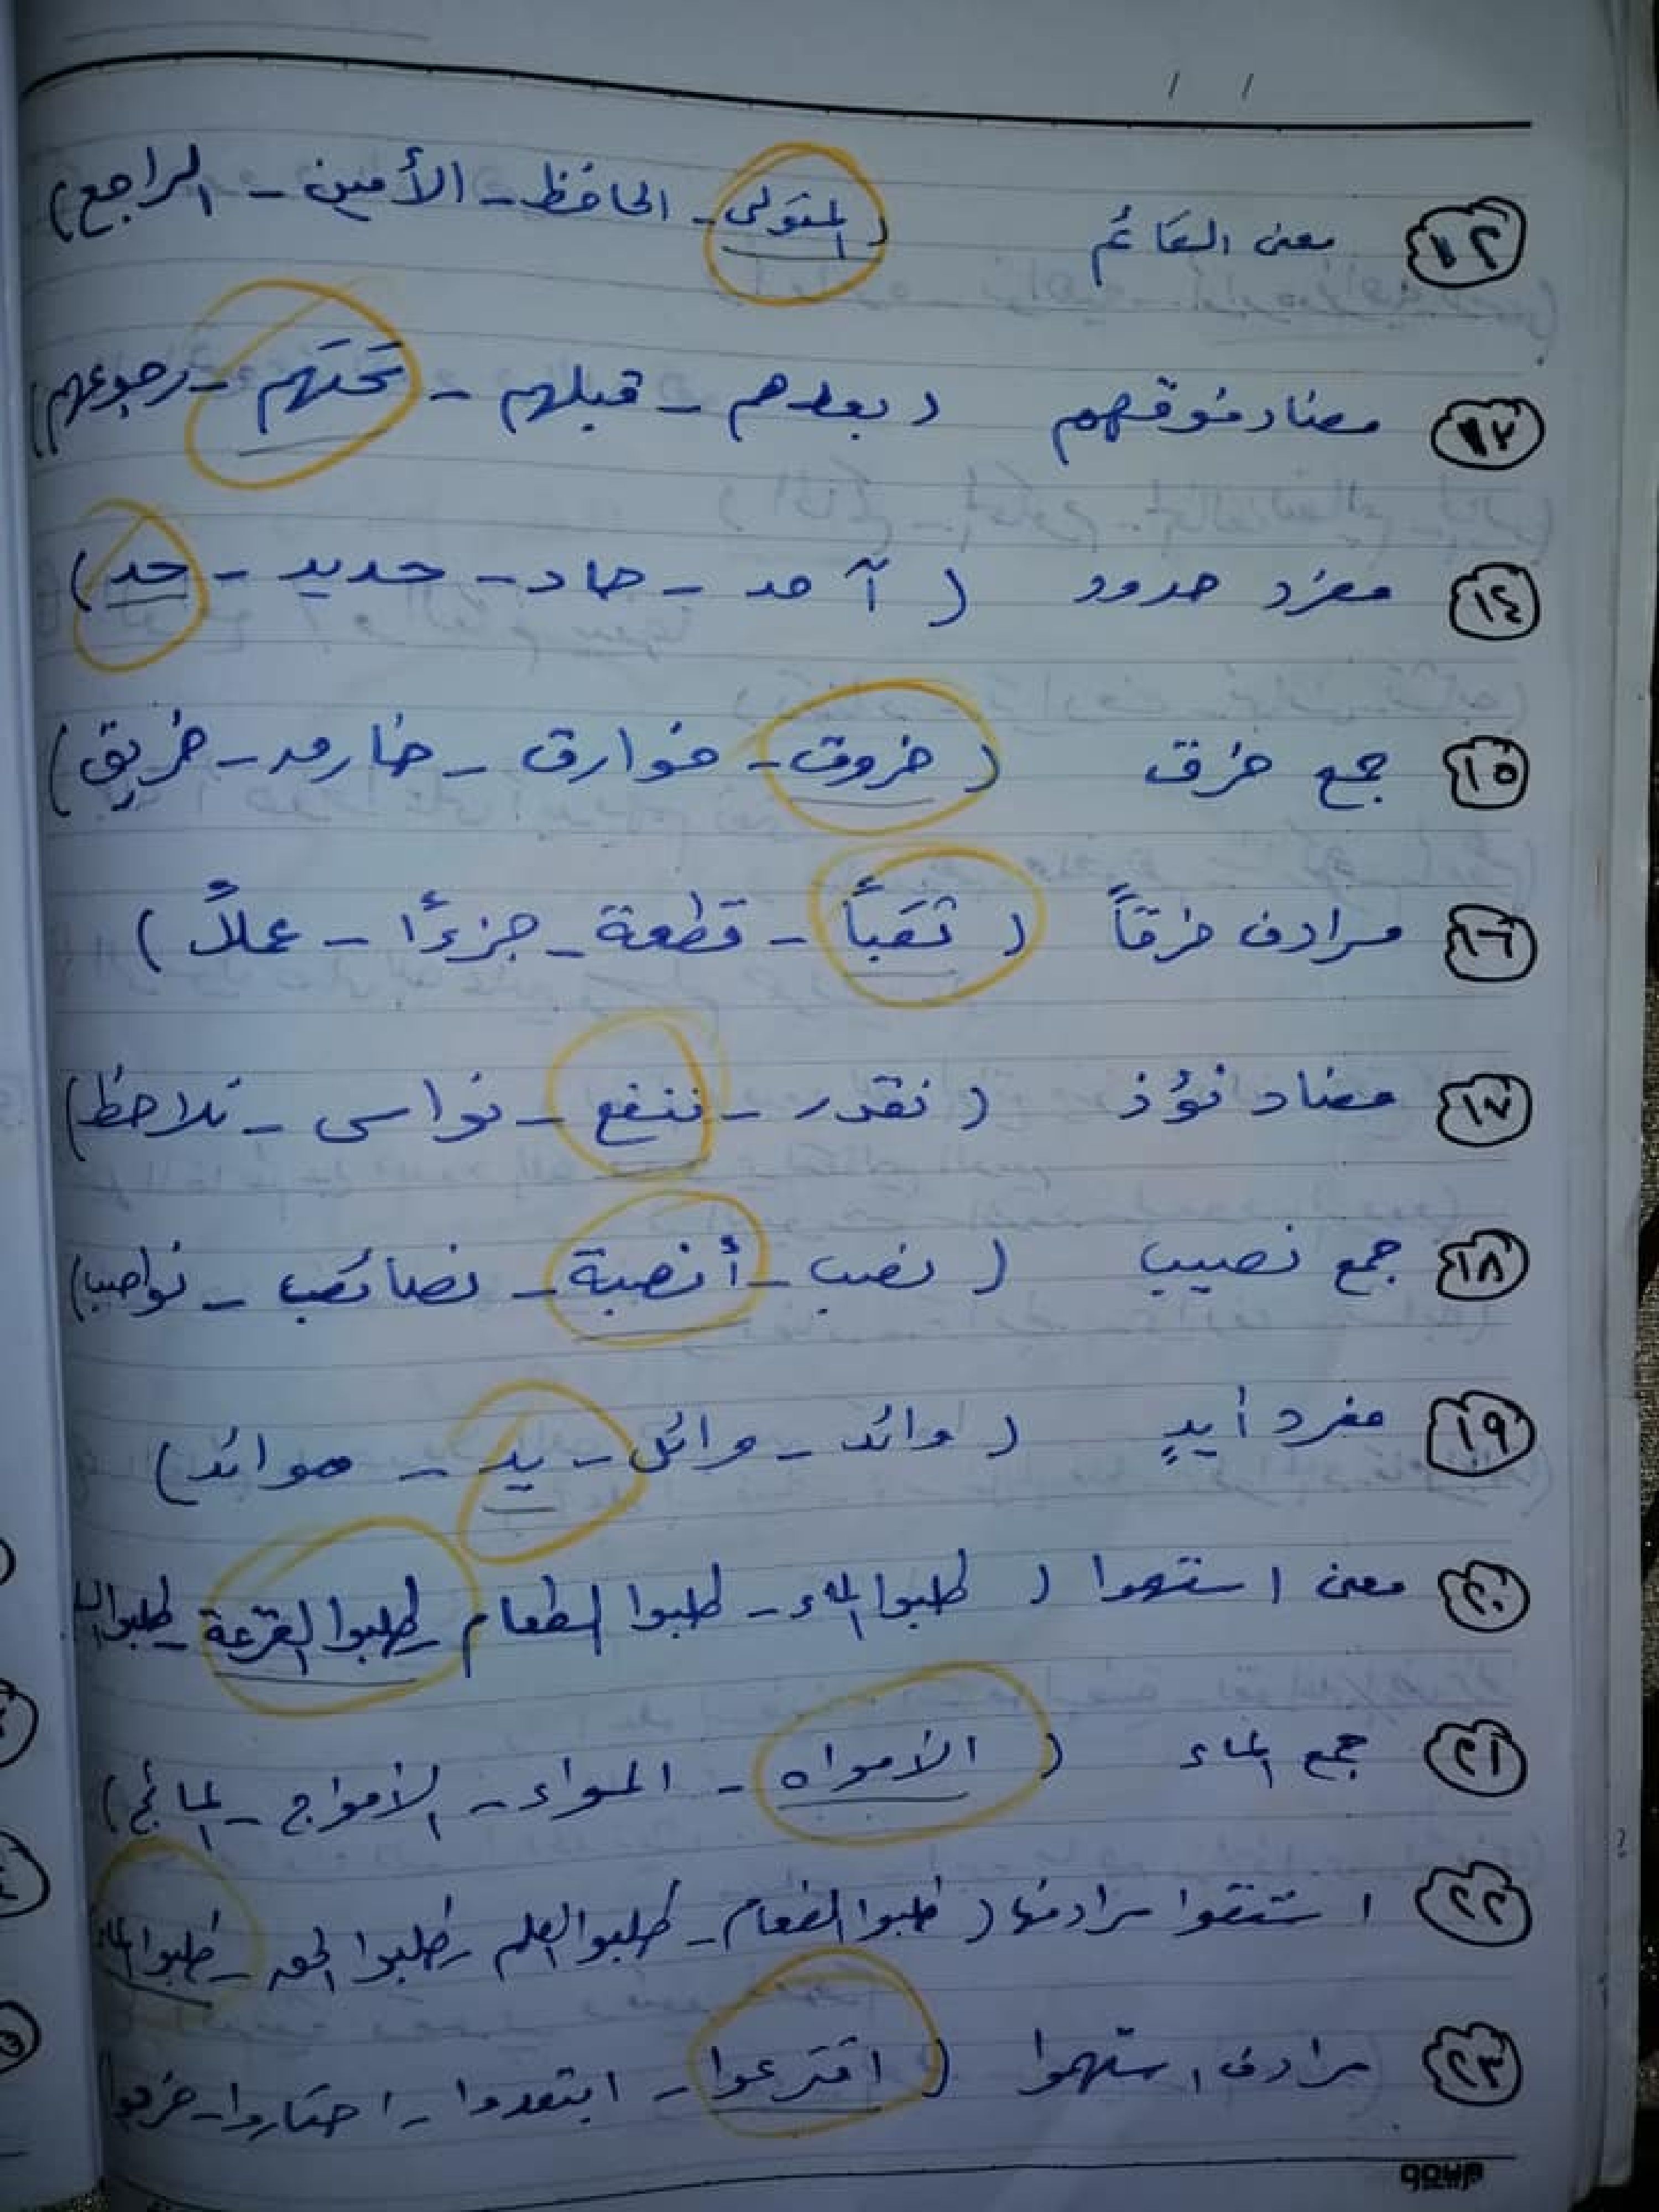 ١٢ معنى القائم ( المتولى - الحافظ - الأمين - الراجع )
١٣ مضاد فوقهم ( بعدهم - قبلهم - تحتهم - رجوعهم )
١٤ مفرد حدود ( آحد - حاد - حديد - حد )
١٥ جمع خرق ( خروق - خوارق - خارق - خريق )
١٦ مرادف خرقاً ( ثقباً - قطعة - جزءًا - عملاً )
١٧ مضاد نؤذ ( نقدر - ننفع - نواسى - نلاحظ )
١٨ جمع نصيب ( نصب - أنصبة - نصائب - نواصب )
١٩ مفرد أيدٍ ( وائد - وائل - يد - هوائد )
٢٠ معنى استهموا ( طلبوا الماء - طلبوا الطعام - طلبوا القرعة - طلبوا
٢١ جمع الماء ( الأمواه - المواء - الأمواج - المائج )
٢٢ استقوا مرادفها ( طلبوا الطعام - طلبوا العلم - طلبوا الحق - طلبوا الماء
٢٣ مرادف استهموا ( اقترعوا - ابتعدوا - احتاروا -